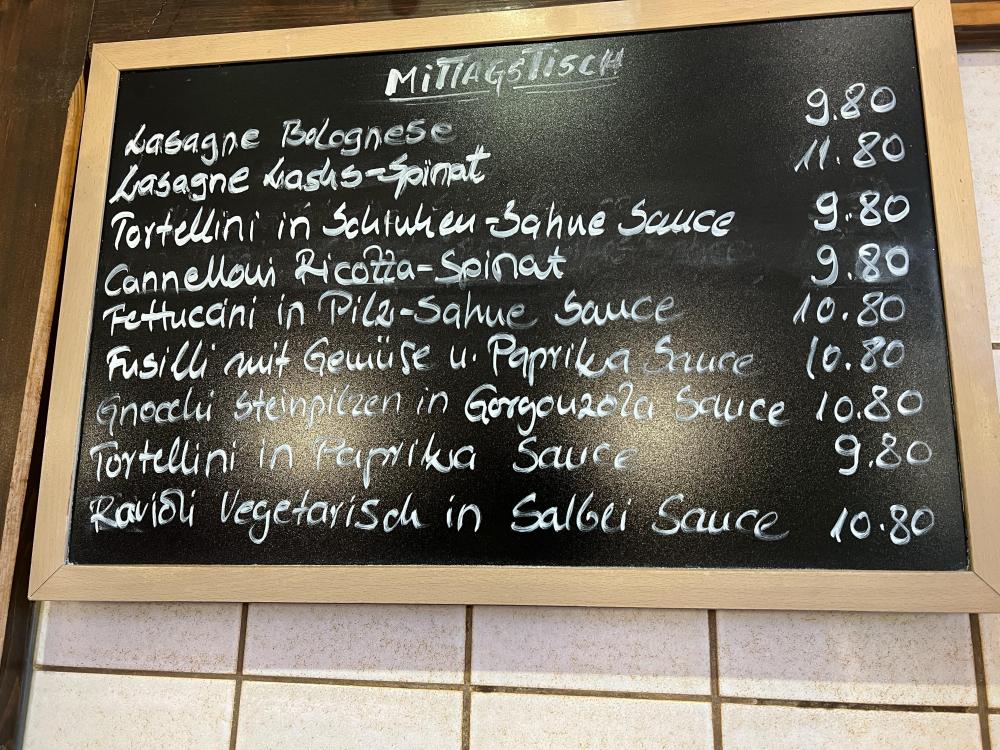 MITTAGSTISCH
Lasagne Bolognese 9.80
Lasagne Lachs-Spinat 11.80
Tortellini in Schinken-Sahne Sauce 9.80
Cannelloni Ricotta-Spinat 9.80
Fettuccini in Pilz-Sahne Sauce 10.80
Fusilli mit Gemüse u. Paprika Sauce 10.80
Gnocchi Steinpilzen in Gorgonzola Sauce 10.80
Tortellini in Paprika Sauce 9.80
Ravioli Vegetarisch in Salbei Sauce 10.80